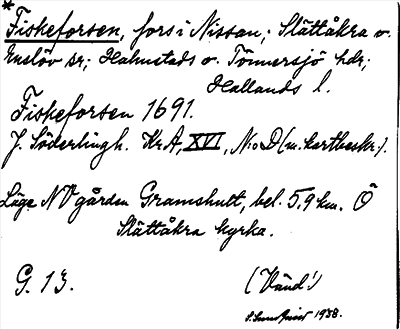 *
Fiskeforsen, fors i Nissan; Slättåkra o.
Enslöv sr; Halmstads o. Tönnersjö hdr;
Hallands l.
Fiskeforsen 1691.
J. Söderlingh. Kr A, XVI, N:o D (m. kartbeskr.).
Läge NV gården Gramshult, bel. 5,9 km. Ö
Slättåkra kyrka.
G. 13. (Vänd!)
1938.